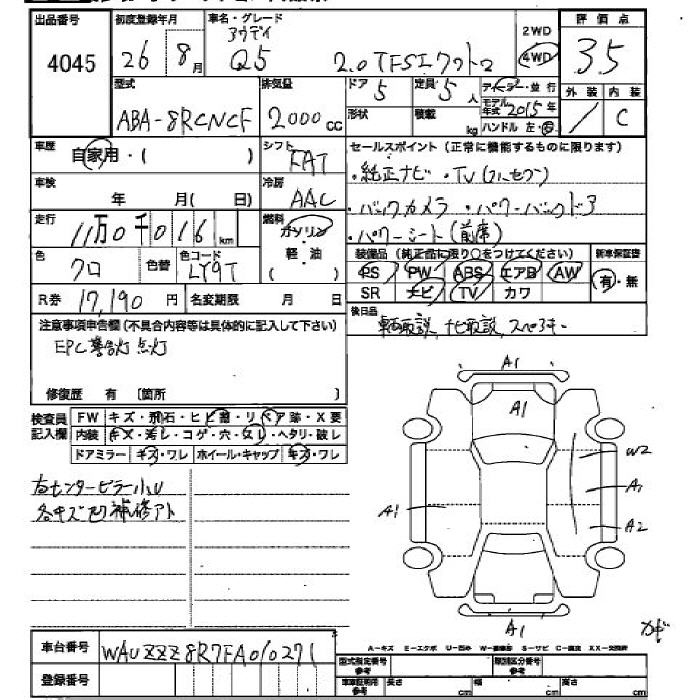 出品番号 初度登録年月 車名・グレード 2WD 評価点
4045 26 8月 アウディ Q5 2.0TFSIクワトロ 4WD 3.5
型式 排気量 ドア 5 定員 5人 ディーラー・並行 外装 内装
ABA-8RCNCF 2000cc 形状 積載 kg モデル年式 2015年 C
ハンドル 左・右
車歴 自家用・( ) シフト FAT セールスポイント(正常に機能するものに限ります)
・純正ナビ・TV(フルセグ)
車検 年 月( 日) 冷房 AAC
・バックカメラ ・パワーバックドア
走行 11万0千016km 燃料 ガソリン 軽・油 ・パワーシート(前席)
装備品(純正品に限り○をつけてください) 新車保証書
色 クロ 色替 色コード LY9T PS PW ABS エアB AW 有・無
R券 17,190円 名変期限 月 日 SR ナビ TV カワ
注意事項申告欄(不具合内容等は具体的に記入して下さい) 後日品
車両取説、ナビ取説、スペアキー
EPC警告灯点灯
修復歴 有 〔箇所 〕
検査員記入欄 FW キズ・飛石・ヒビ割・リペア跡・X要
内装 キズ・汚レ・コゲ・穴・スレ・ヘタリ・破レ
ドアミラー キズ・ワレ ホイール・キャップ キズ・ワレ
右センターピラー小U
各キズ凹補修アト
A1
A1
W2
A1
A1
A2
A1
A-キズ E-エクボ U-凹み W-補修跡 S-サビ C-腐食 XX-交換済
車台番号 WAUZZZ8R7FA010271
登録番号
型式指定番号 参考 類別区分番号 参考
車車証明用 参考 長さ cm 幅 cm 高さ cm